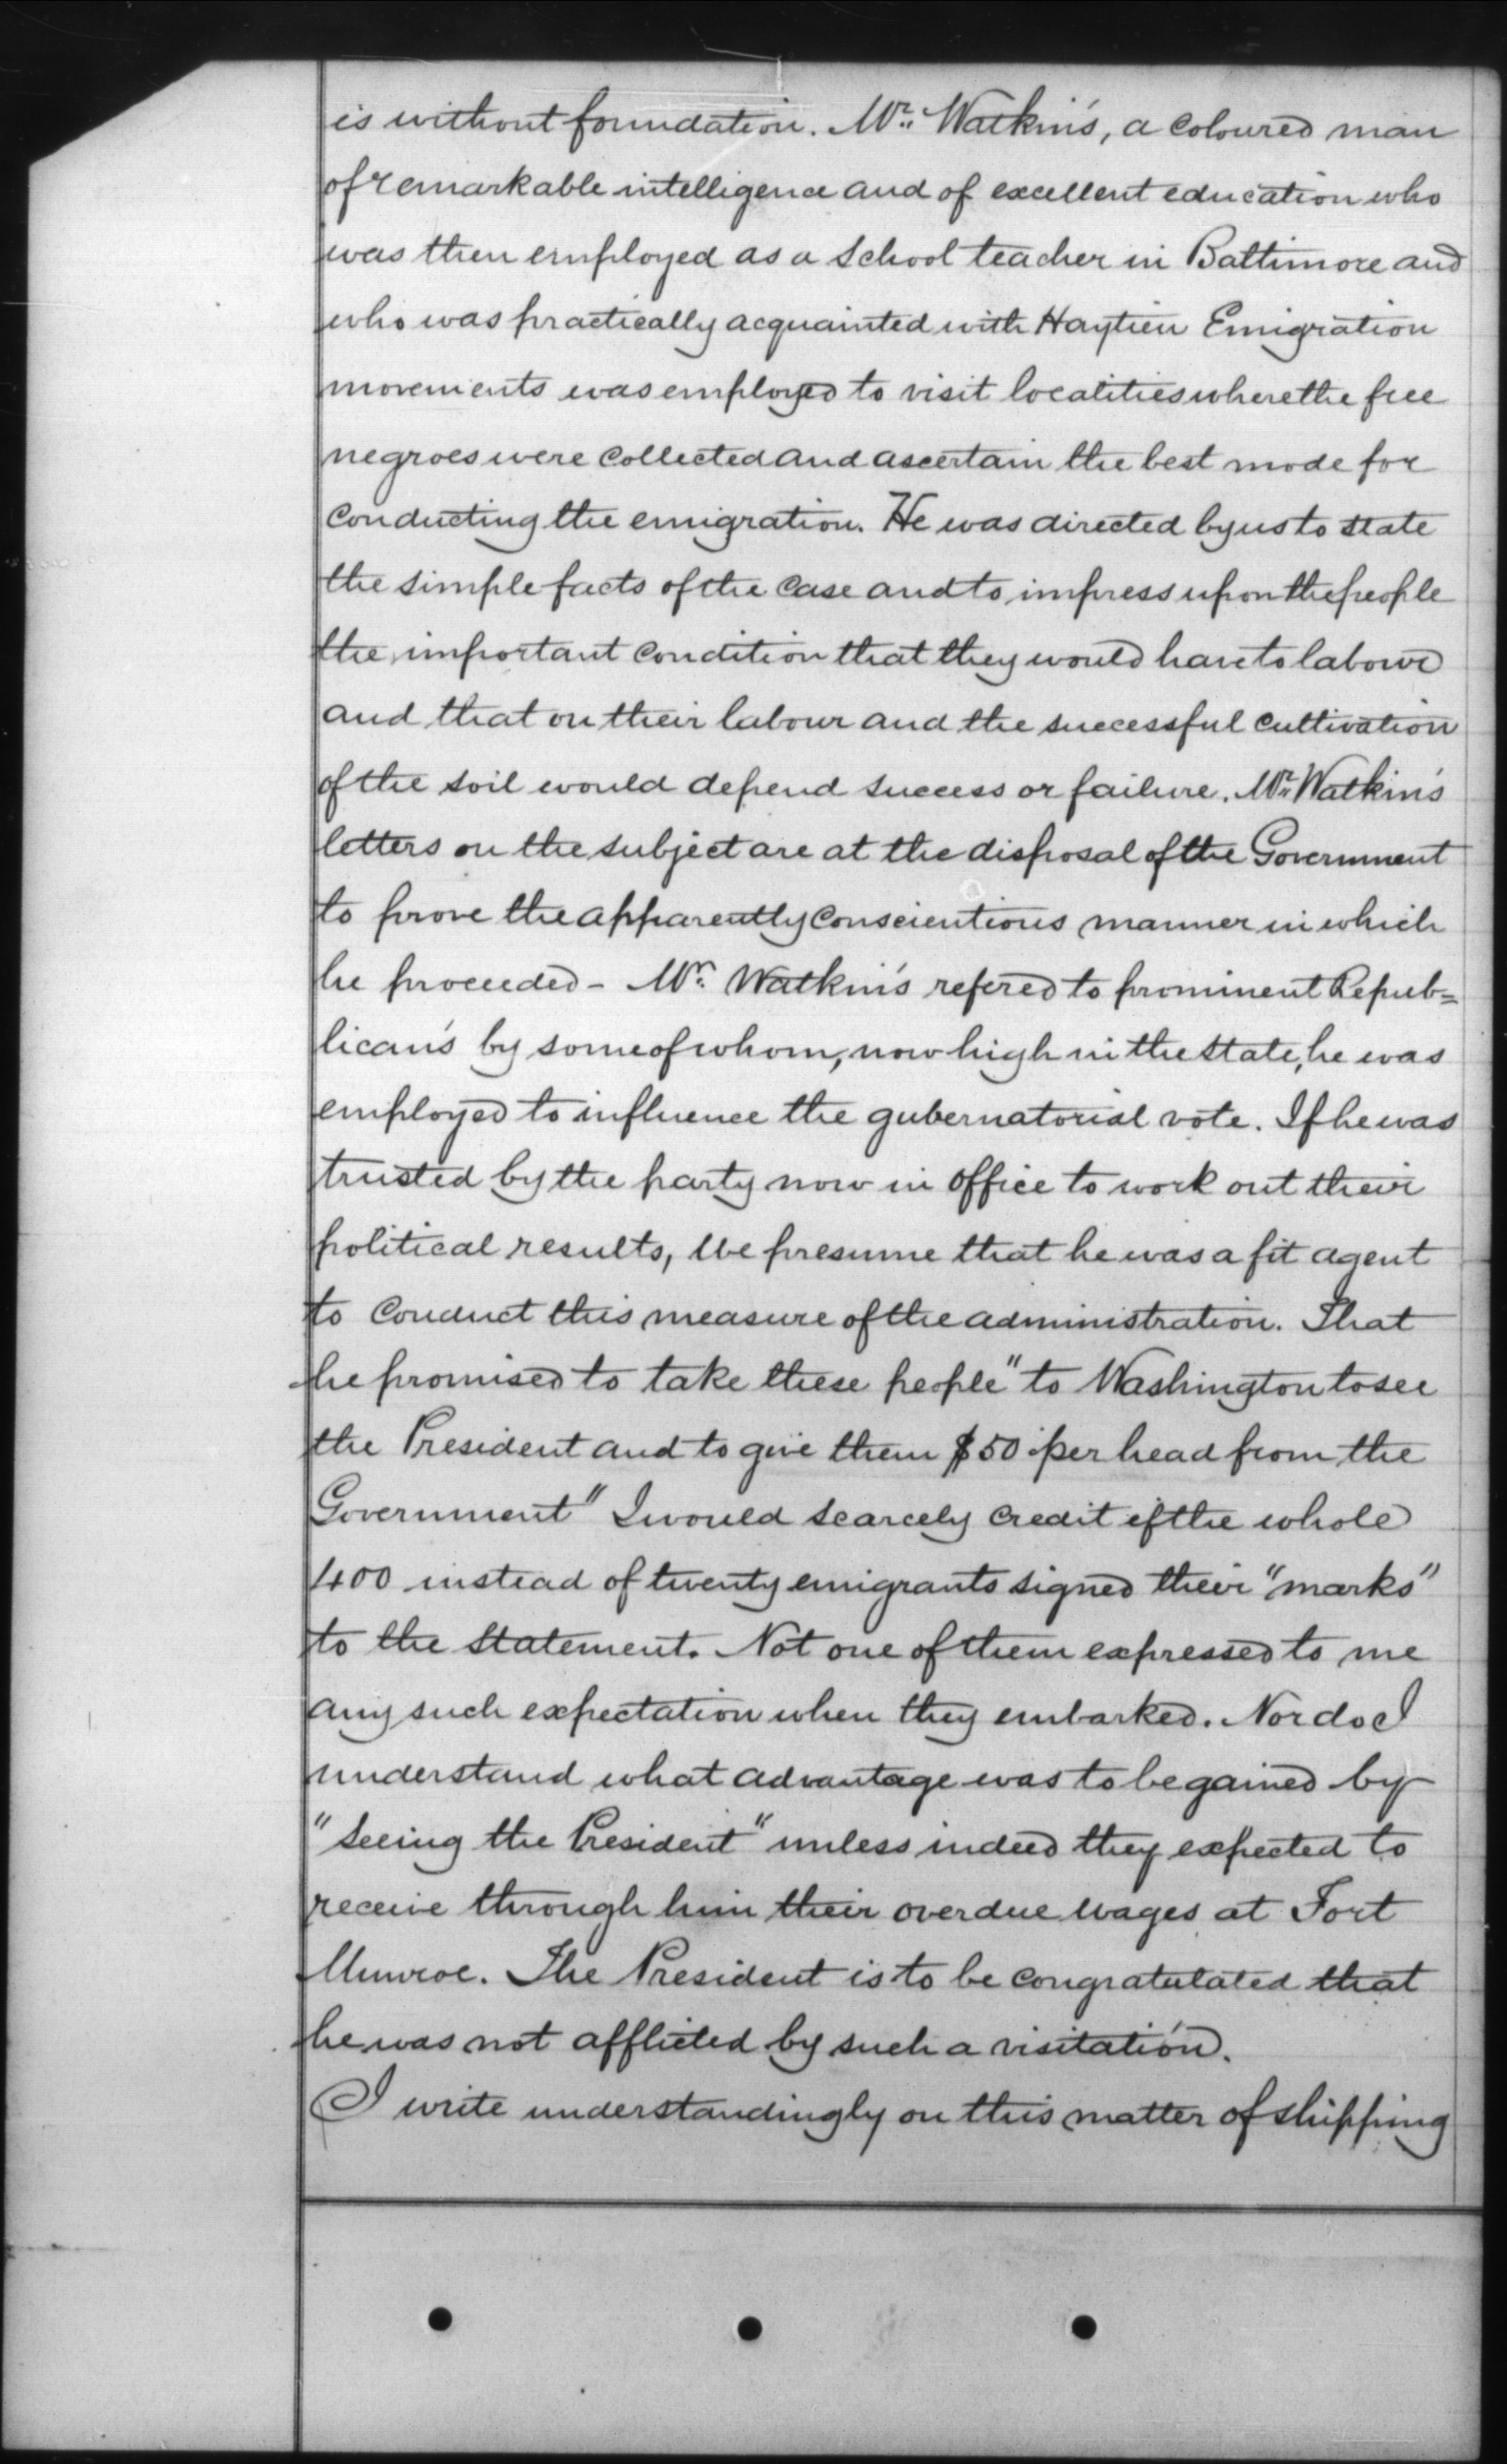 is without foundation. Mr. Watkin's, a coloured man
of remarkable intelligence and of excellent education who
was then employed as a school teacher in Baltimore and
who was practically acquainted with Haytien Emigration
movements was employed to visit localities where the free
negroes were collected and ascertain the best mode for
conducting the emigration. He was directed by us to state
the simple facts of the case and to impress upon the people
the important condition that they would have to labour
and that on their labour and the successful cultivation
of the soil would depend success or failure. Mr. Watkin's
letters on the subject are at the disposal of the Government
to prove the apparently conscientious manner in which
he proceeded - Mr. Watkin's refered to prominent Repub=
lican's by some of whom, now high in the state, he was
employed to influence the gubernatorial vote. If he was
trusted by the party now in office to work out their
political results, we presume that he was a fit agent
to conduct this measure of the administration. That
he promised to take these people "to Washington to see
the President and to give them $50 per head from the
Government" I would scarcely credit if the whole
400 instead of twenty emigrants signed their "marks"
to the statement. Not one of them expressed to me
any such expectation when they embarked. Nor do I
understand what advantage was to be gained by
"seeing the President" unless indeed they expected to
receive through him their overdue wages at Fort
Munroe. The President is to be congratulated that
he was not afflicted by such a visitation.
I write understandingly on this matter of shipping